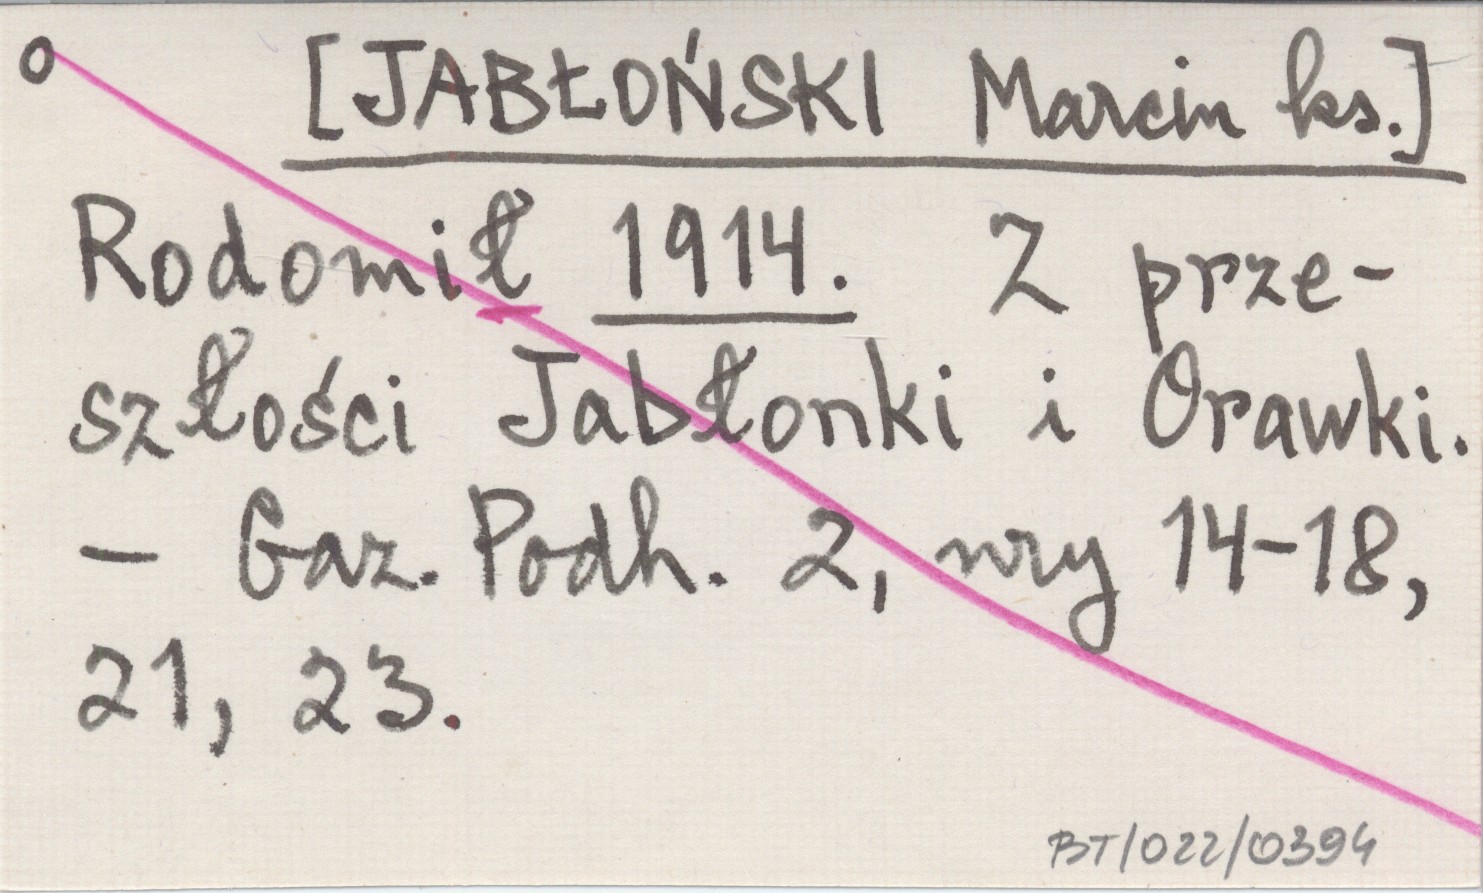 o [JABŁOŃSKI Marcin ks.]
Rodomił 1914. Z prze-
szłości Jabłonki i Orawki.
– Gaz. Podh. 2, nry 14-18,
21, 23.
BT/022/0394